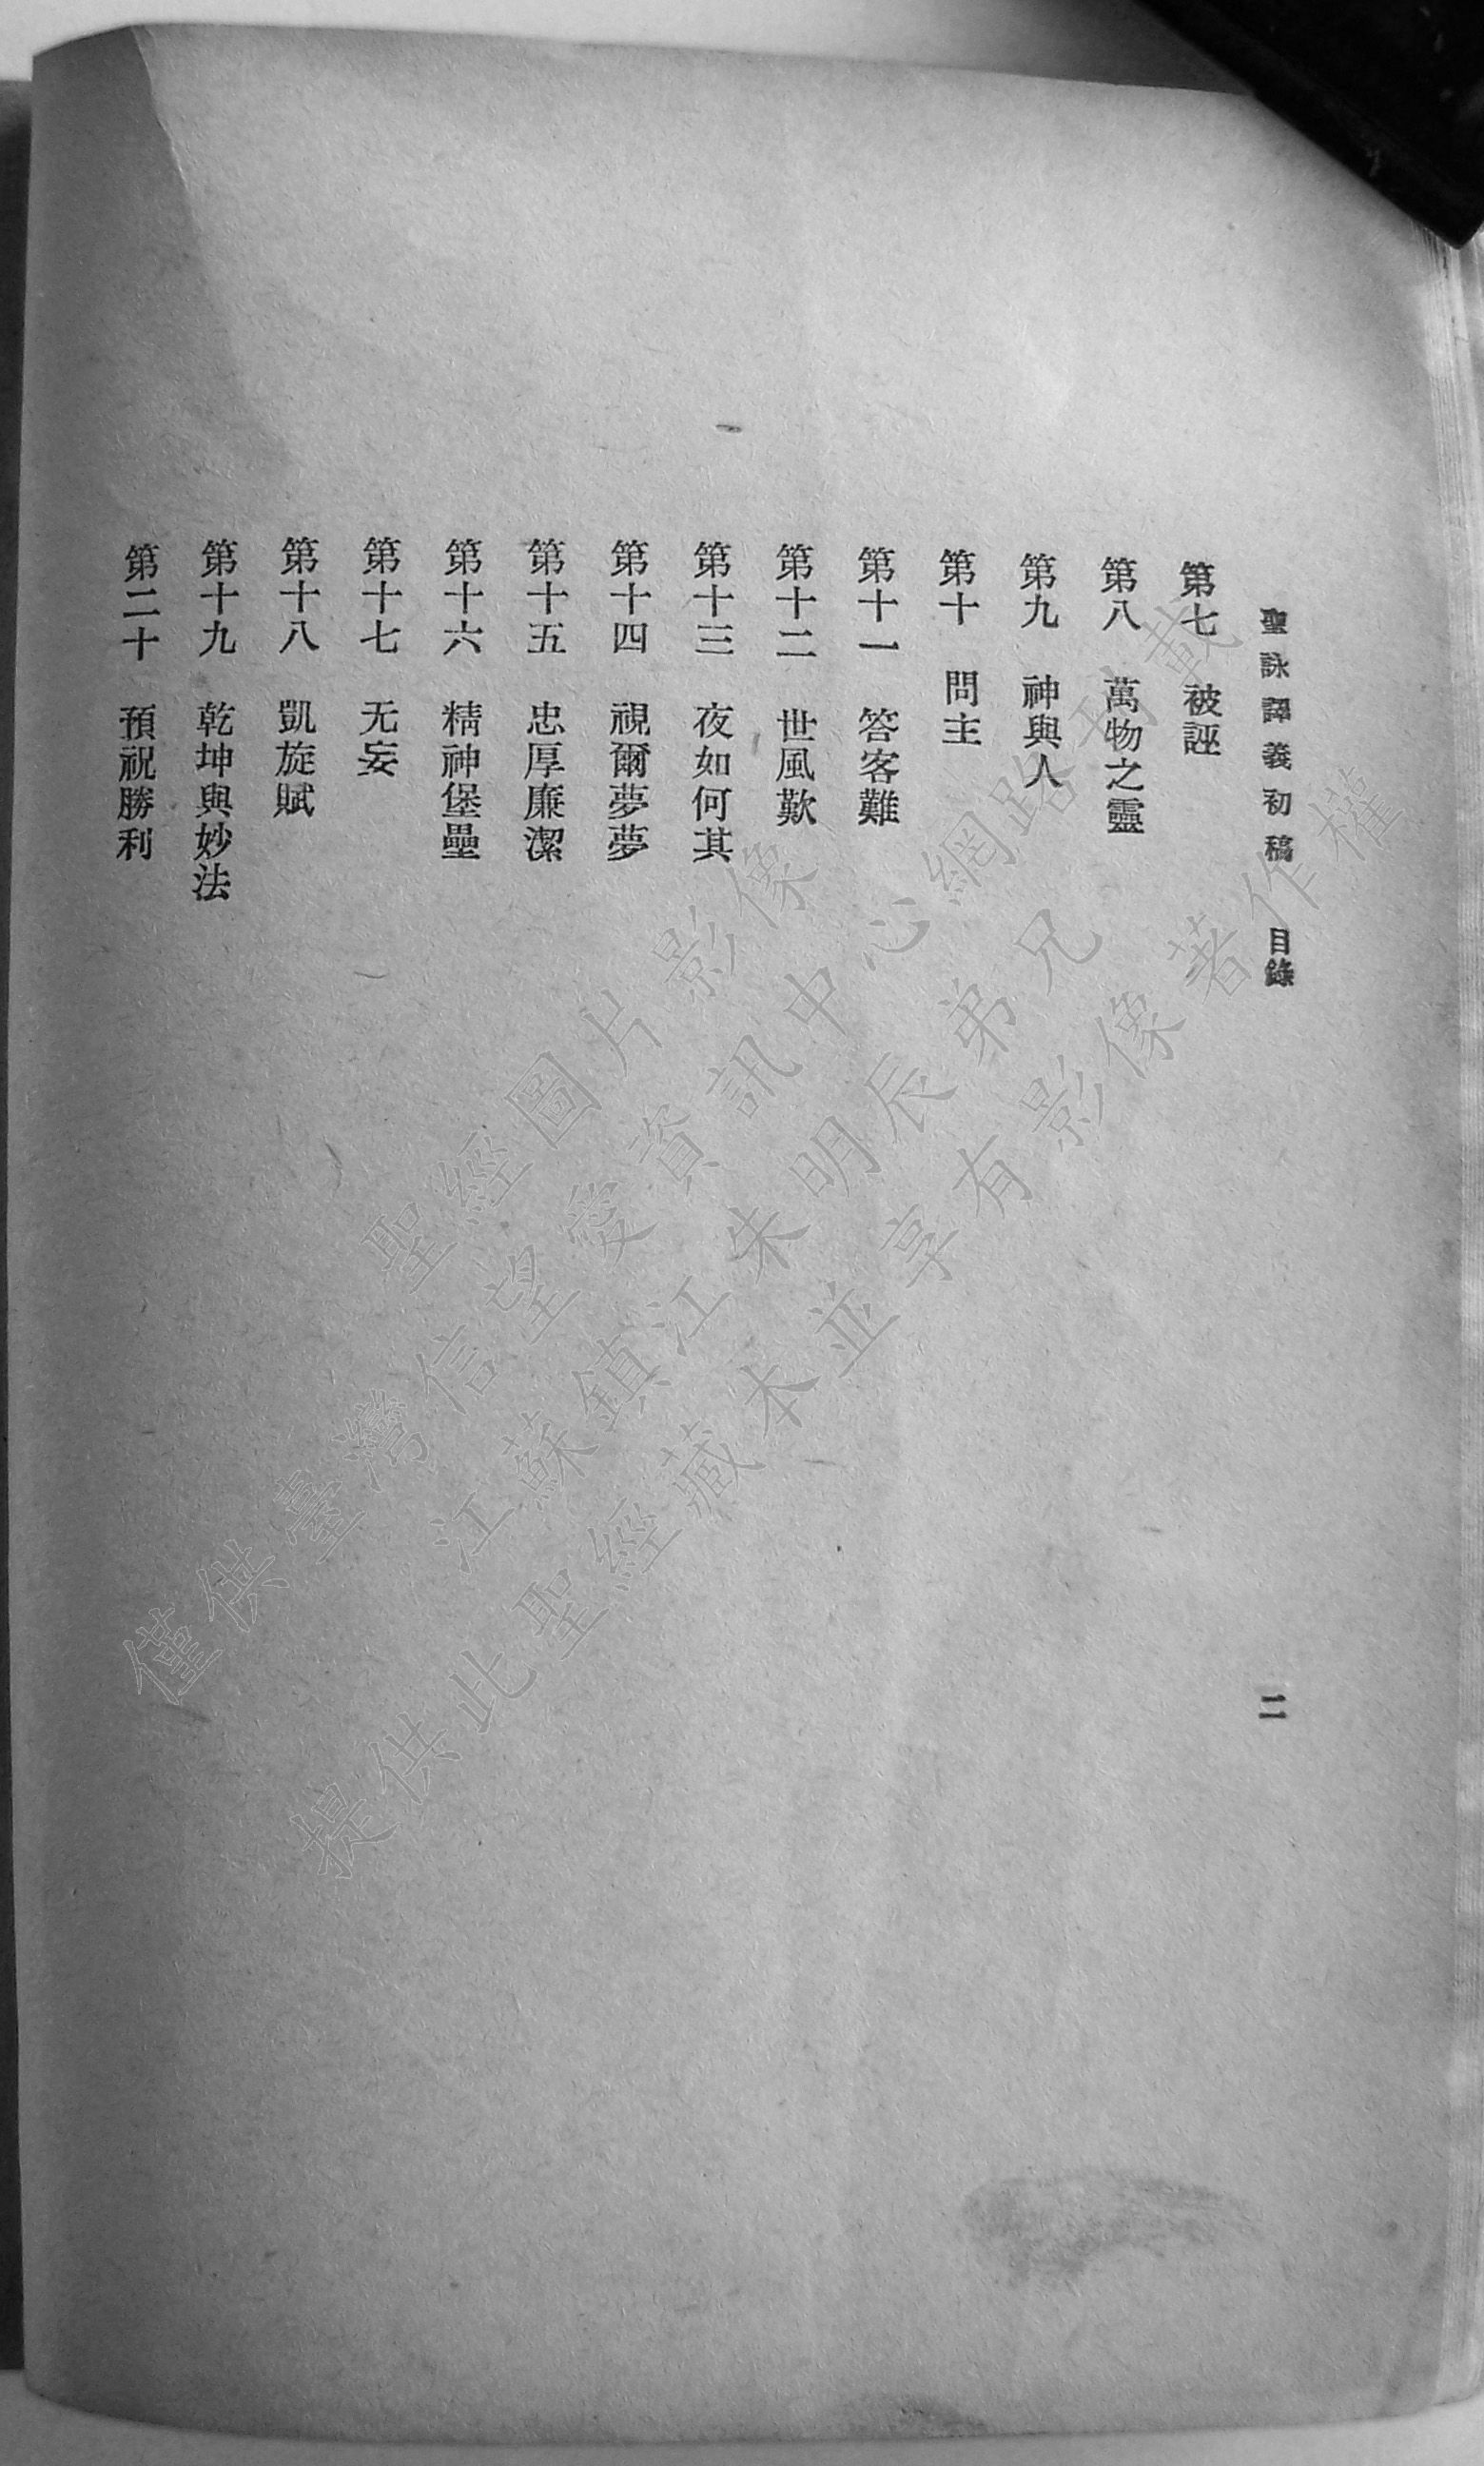 聖詠譯義初稿 目錄 二
第七 被誣
第八 萬物之靈
第九 神與人
第十 問主
第十一 答客難
第十二 世風歎
第十三 夜如何其
第十四 視爾夢夢
第十五 忠厚廉潔
第十六 精神堡壘
第十七 无妄
第十八 凱旋賦
第十九 乾坤與妙法
第二十 預祝勝利
聖經圖片影像
僅供臺灣信望愛資訊中心網路刊載
江蘇鎮江朱明辰弟兄
提供此聖經藏本並享有影像著作權